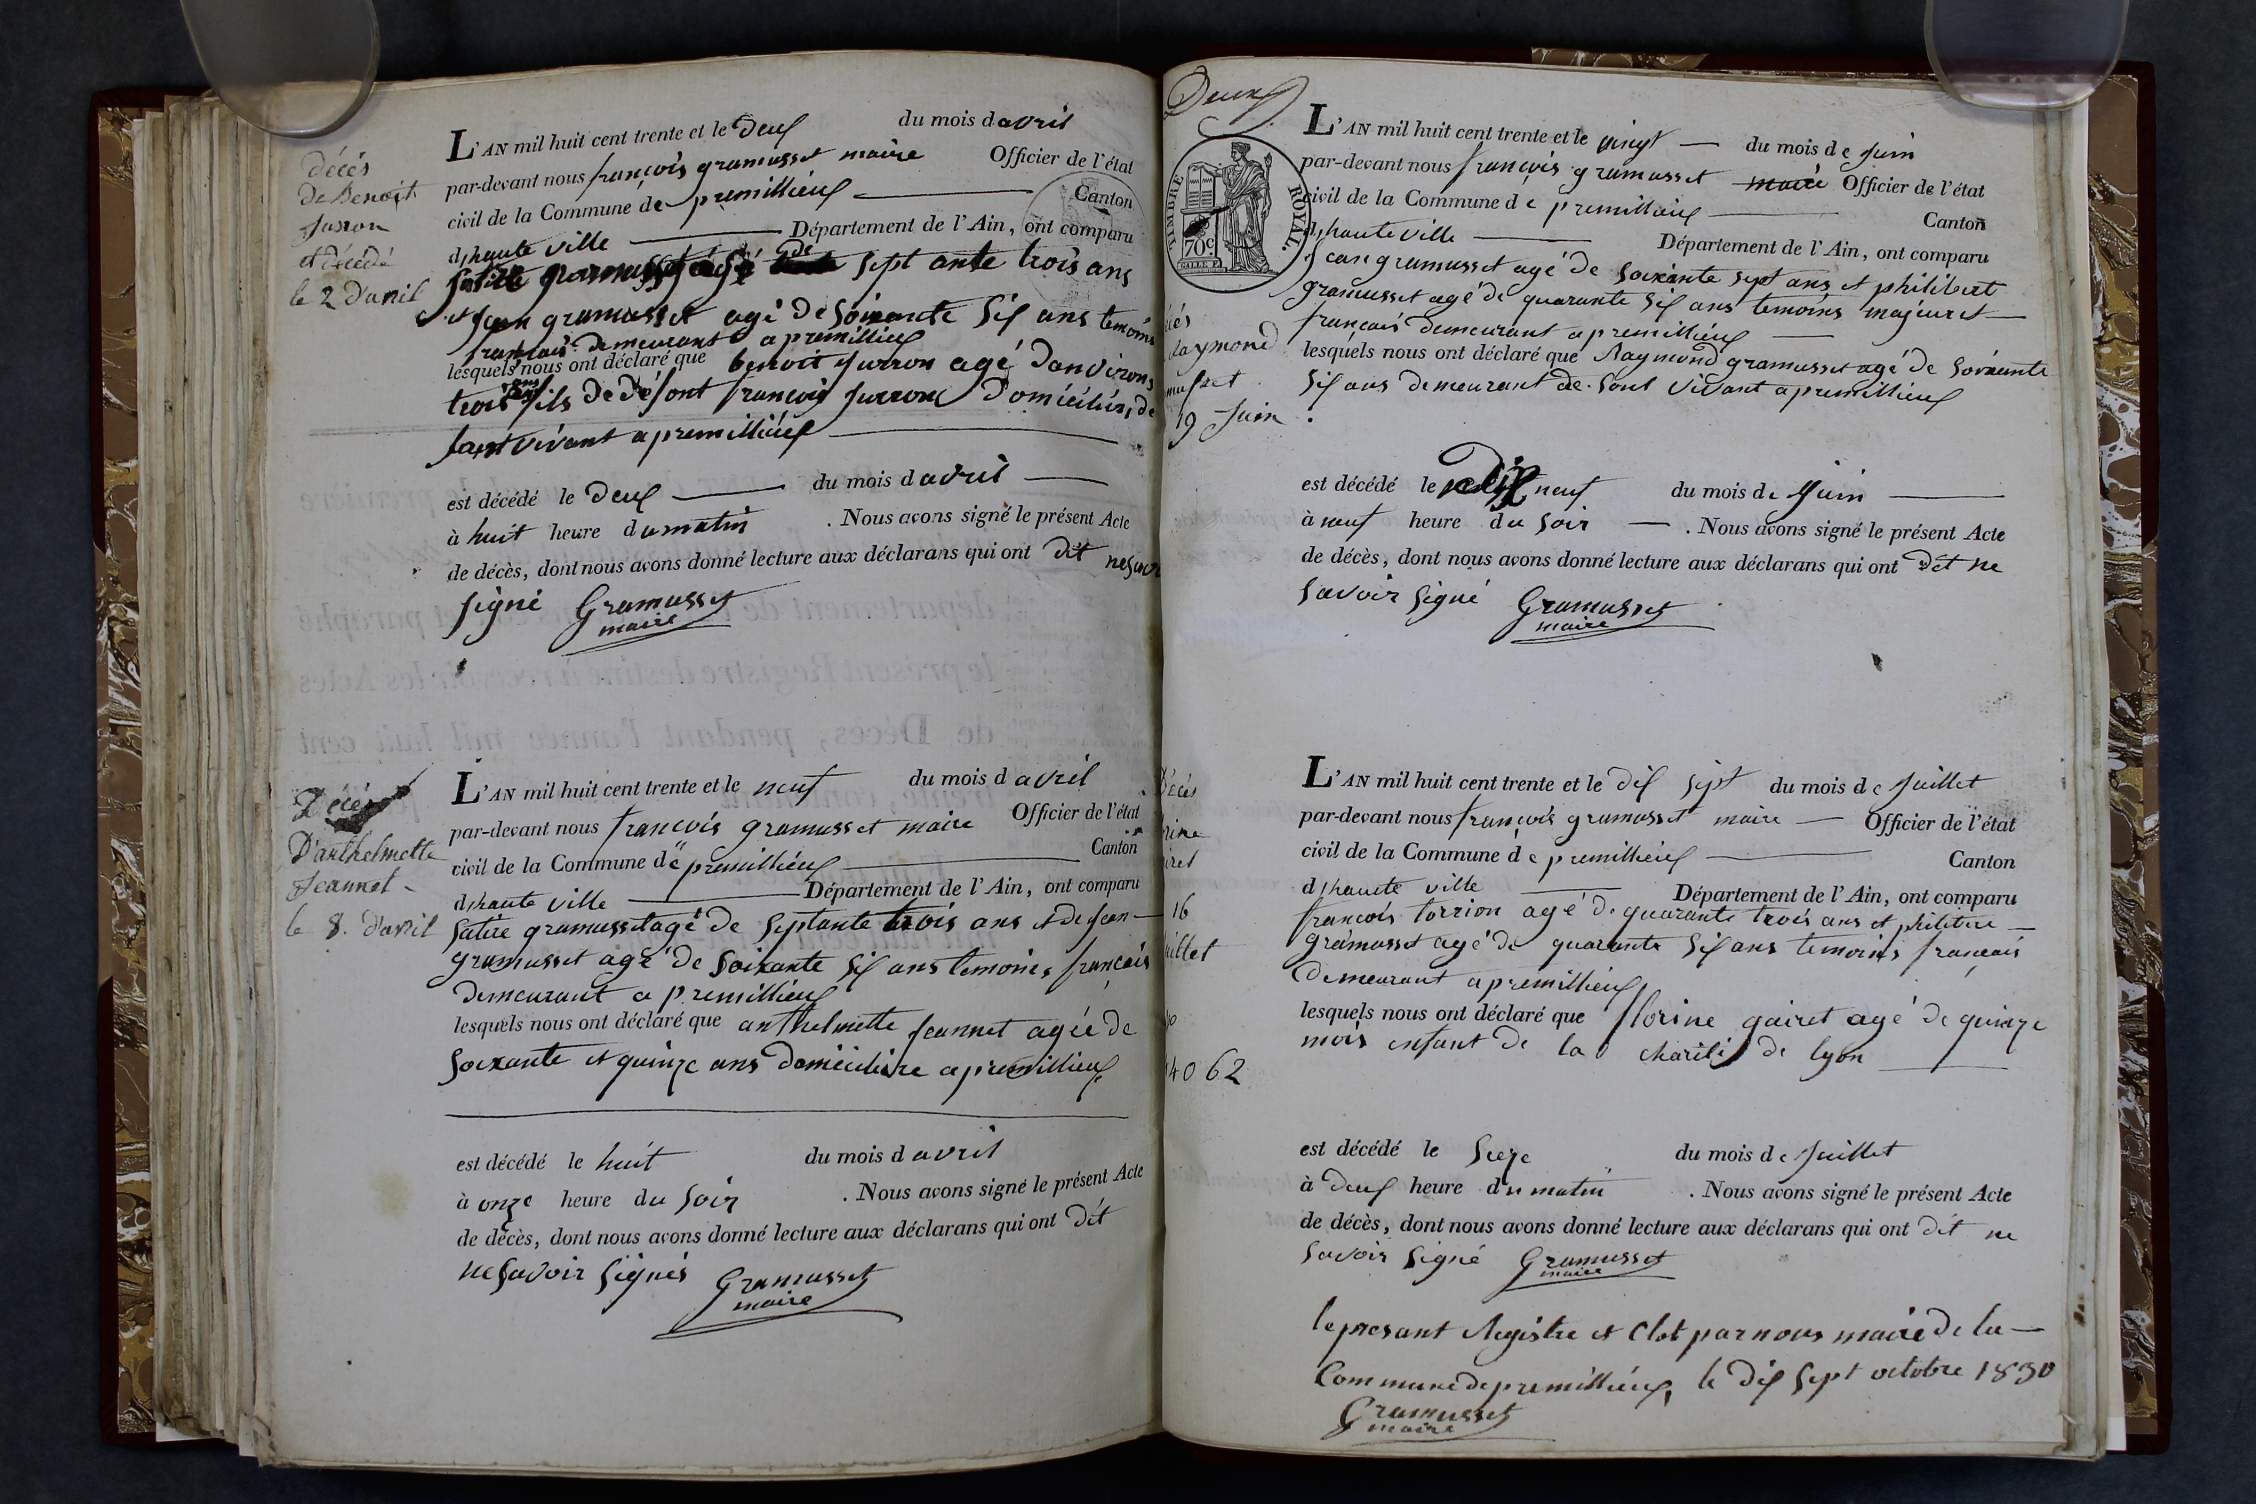 décés
De Benoit
Jurron
et décédé
le 2 D'avril
L'AN mil huit cent trente et le Deux du mois d avril
par-devant nous françois gramusset maire Officier de l'état
civil de la Commune de premillieux Canton
d'haute ville Département de l'Ain, ont comparu
gramusset agé de sept ante trois ans
et Jean gramusset agé de soixante six ans temoins
francais demeurant a premillieux
lesquels nous ont déclaré que benoit jurron agé d'environs
trois ans fils de défont françois jurron domiciliés, de
sont vivant a premillieux
est décédé le Deux du mois d avril
à huit heure du matin . Nous avons signé le présent Acte
de décès, dont nous avons donné lecture aux déclarans qui ont dit ne savoir
signé Gramusset
maire
Décés
D'anthelmette
Jeannet
le 8. D'avril
L'AN mil huit cent trente et le neuf du mois d avril
par-devant nous françois gramusset maire Officier de l'état
civil de la Commune de premillieux Canton
d'haute ville Département de l'Ain, ont comparu
gramusset agé de septante trois ans et de Jean
gramusset agé de soixante six ans temoins francais
demeurant a premillieux
lesquels nous ont déclaré que anthelmette jeannet agée de
soixante et quinze ans domiciliire a premillieux
est décédé le huit du mois d avril
à onze heure du soir . Nous avons signé le présent Acte
de décès, dont nous avons donné lecture aux déclarans qui ont dit
ne savoir signés Gramusset
maire
Deux
TIMBRE ROYAL.
70c
L'AN mil huit cent trente et le vingt du mois de Juin
par-devant nous françois gramusset maire Officier de l'état
civil de la Commune de premillieux Canton
d'haute ville Département de l'Ain, ont comparu
Jean gramusset agé de soixante sept ans et philibert
gramusset agé de quarante six ans temoins majeur et
francais demeurant a premillieux
aymond
musset
19 Juin
lesquels nous ont déclaré que Raymond gramusset agé de soixante
six ans demeurant de sont vivant a premillieux
est décédé le Dix neuf du mois de Juin
à neuf heure du soir . Nous avons signé le présent Acte
de décès, dont nous avons donné lecture aux déclarans qui ont dit ne
savoir signé Gramusset
maire
Décés
rine
iret
16
uillet
14062
L'AN mil huit cent trente et le dix sept du mois de Juillet
par-devant nous françois gramusset maire Officier de l'état
civil de la Commune de premillieux Canton
d'haute ville Département de l'Ain, ont comparu
françois torrion agé de quarante trois ans et philibere
gramusset agé de quarante six ans temoins francais
demeurant a premillieux
lesquels nous ont déclaré que florine gairet agé de quinze
mois enfant de la charité de lyon
est décédé le Seeze du mois de Juillet
à deux heure du matin . Nous avons signé le présent Acte
de décès, dont nous avons donné lecture aux déclarans qui ont dit ne
savoir signé Gramusset
maire
le presant Registre et Clot par nous maire de la
Commune de premillieux, le dix sept octobre 1830
Gramusset
maire